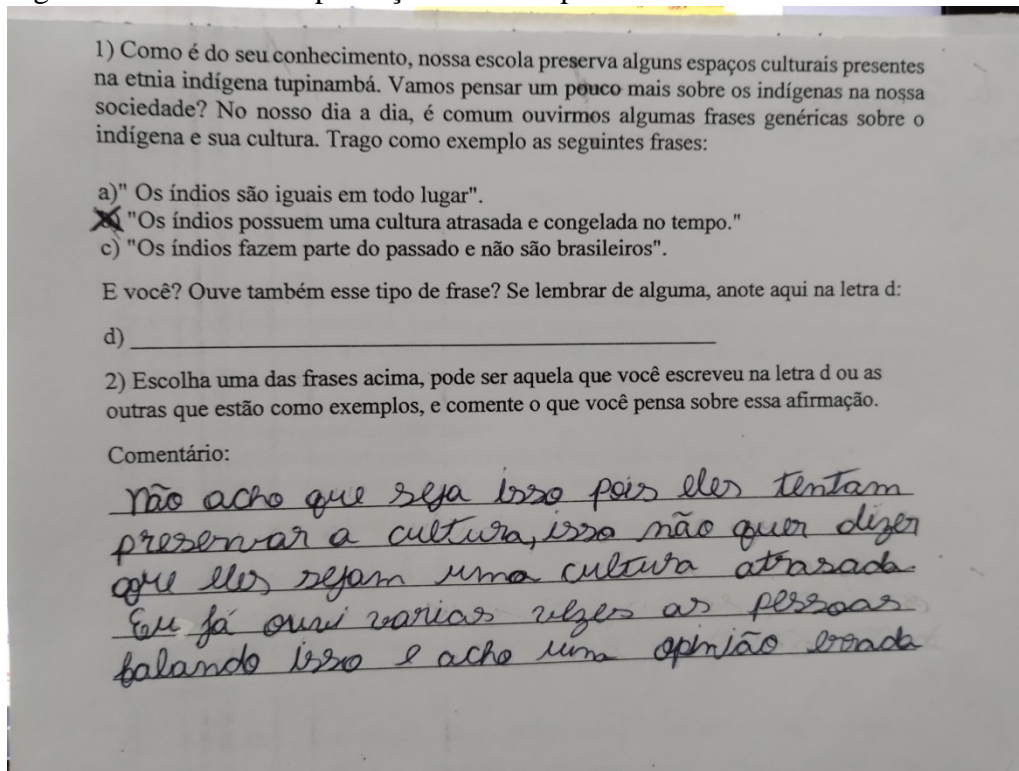 1) Como é do seu conhecimento, nossa escola preserva alguns espaços culturais presentes
na etnia indígena tupinambá. Vamos pensar um pouco mais sobre os indígenas na nossa
sociedade? No nosso dia a dia, é comum ouvirmos algumas frases genéricas sobre o
indígena e sua cultura. Trago como exemplo as seguintes frases:
a)" Os índios são iguais em todo lugar".
"Os índios possuem uma cultura atrasada e congelada no tempo."
c) "Os índios fazem parte do passado e não são brasileiros".
E você? Ouve também esse tipo de frase? Se lembrar de alguma, anote aqui na letra d:
d)
2) Escolha uma das frases acima, pode ser aquela que você escreveu na letra d ou as
outras que estão como exemplos, e comente o que você pensa sobre essa afirmação.
Comentário:
não acho que seja isso pois eles tentam
preservar a cultura, isso não quer dizer
que eles sejam uma cultura atrasada.
Eu já ouvi varias vezes as pessoas
falando isso e acho uma opinião errada